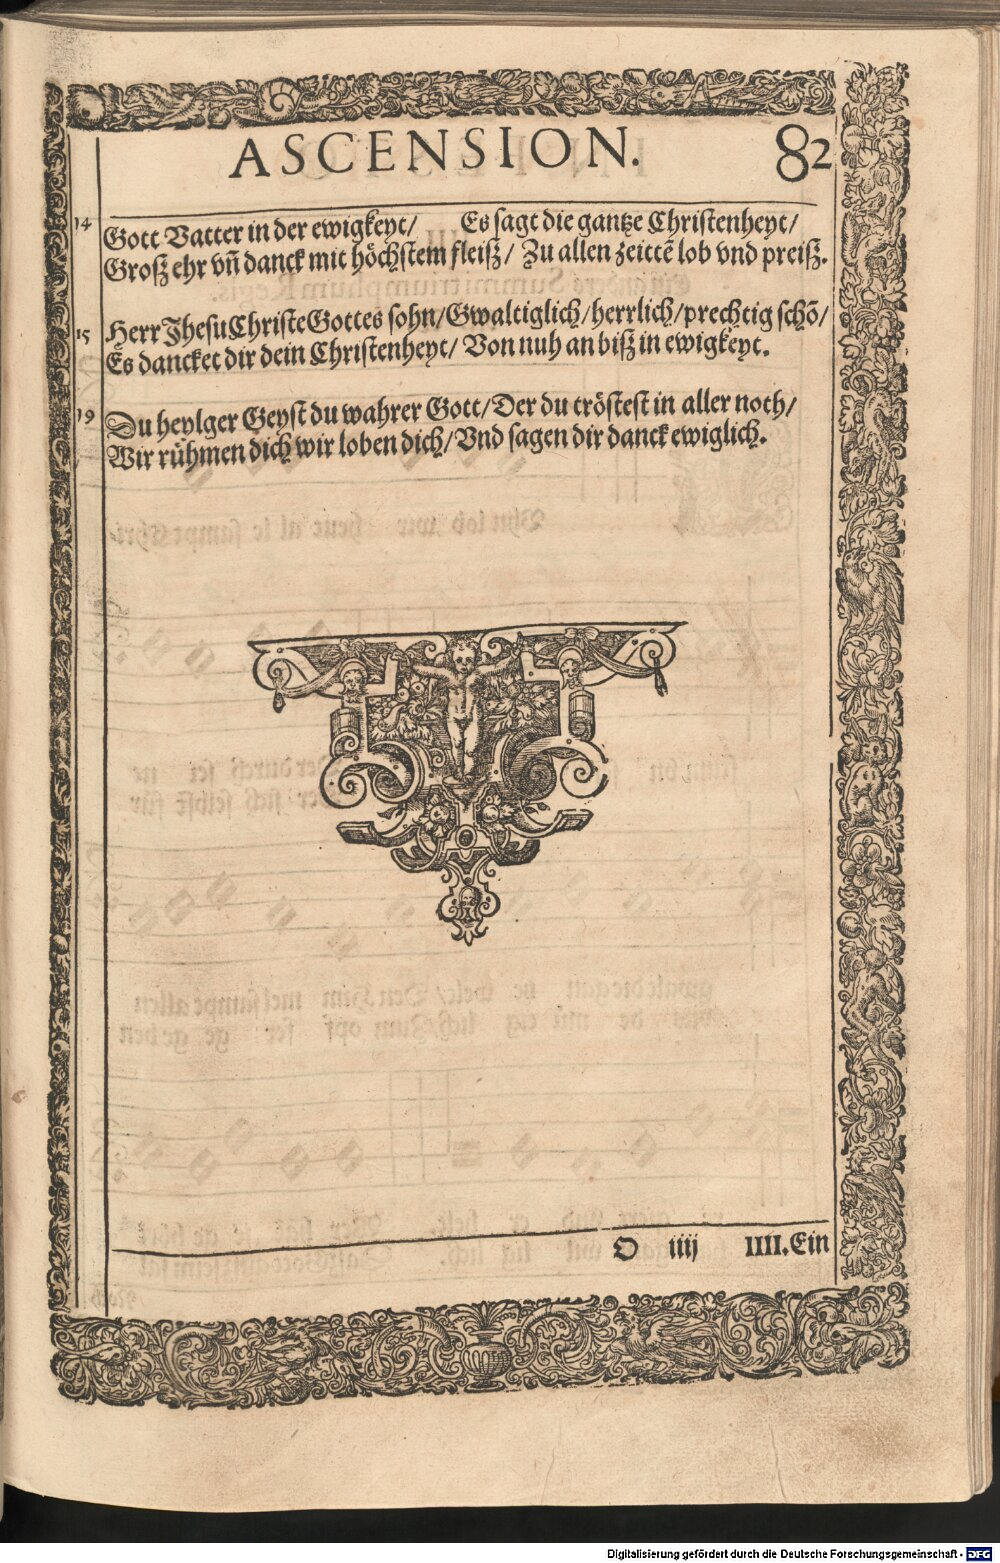 ASCENSION. 82
14 Gott Vatter in der ewigkeyt/ Es sagt die gantze Christenheyt/
Grosz ehr vñ danck mit höchstem fleisz/ Zu allen zeittẽ lob vnd preisz.
15 Herr Jhesu Christe Gottes sohn/ Gwaltiglich/ herrlich/ prechtig schõ/
Es dancket dir dein Christenheyt/ Von nuh an bisz in ewigkeyt.
19 Du heylger Geyst du wahrer Gott/ Der du tröstest in aller noth/
Wir rühmen dich wir loben dich/ Vnd sagen dir danck ewiglich.
O iiij IIII. Ein
Digitalisierung gefördert durch die Deutsche Forschungsgemeinschaft - DFG